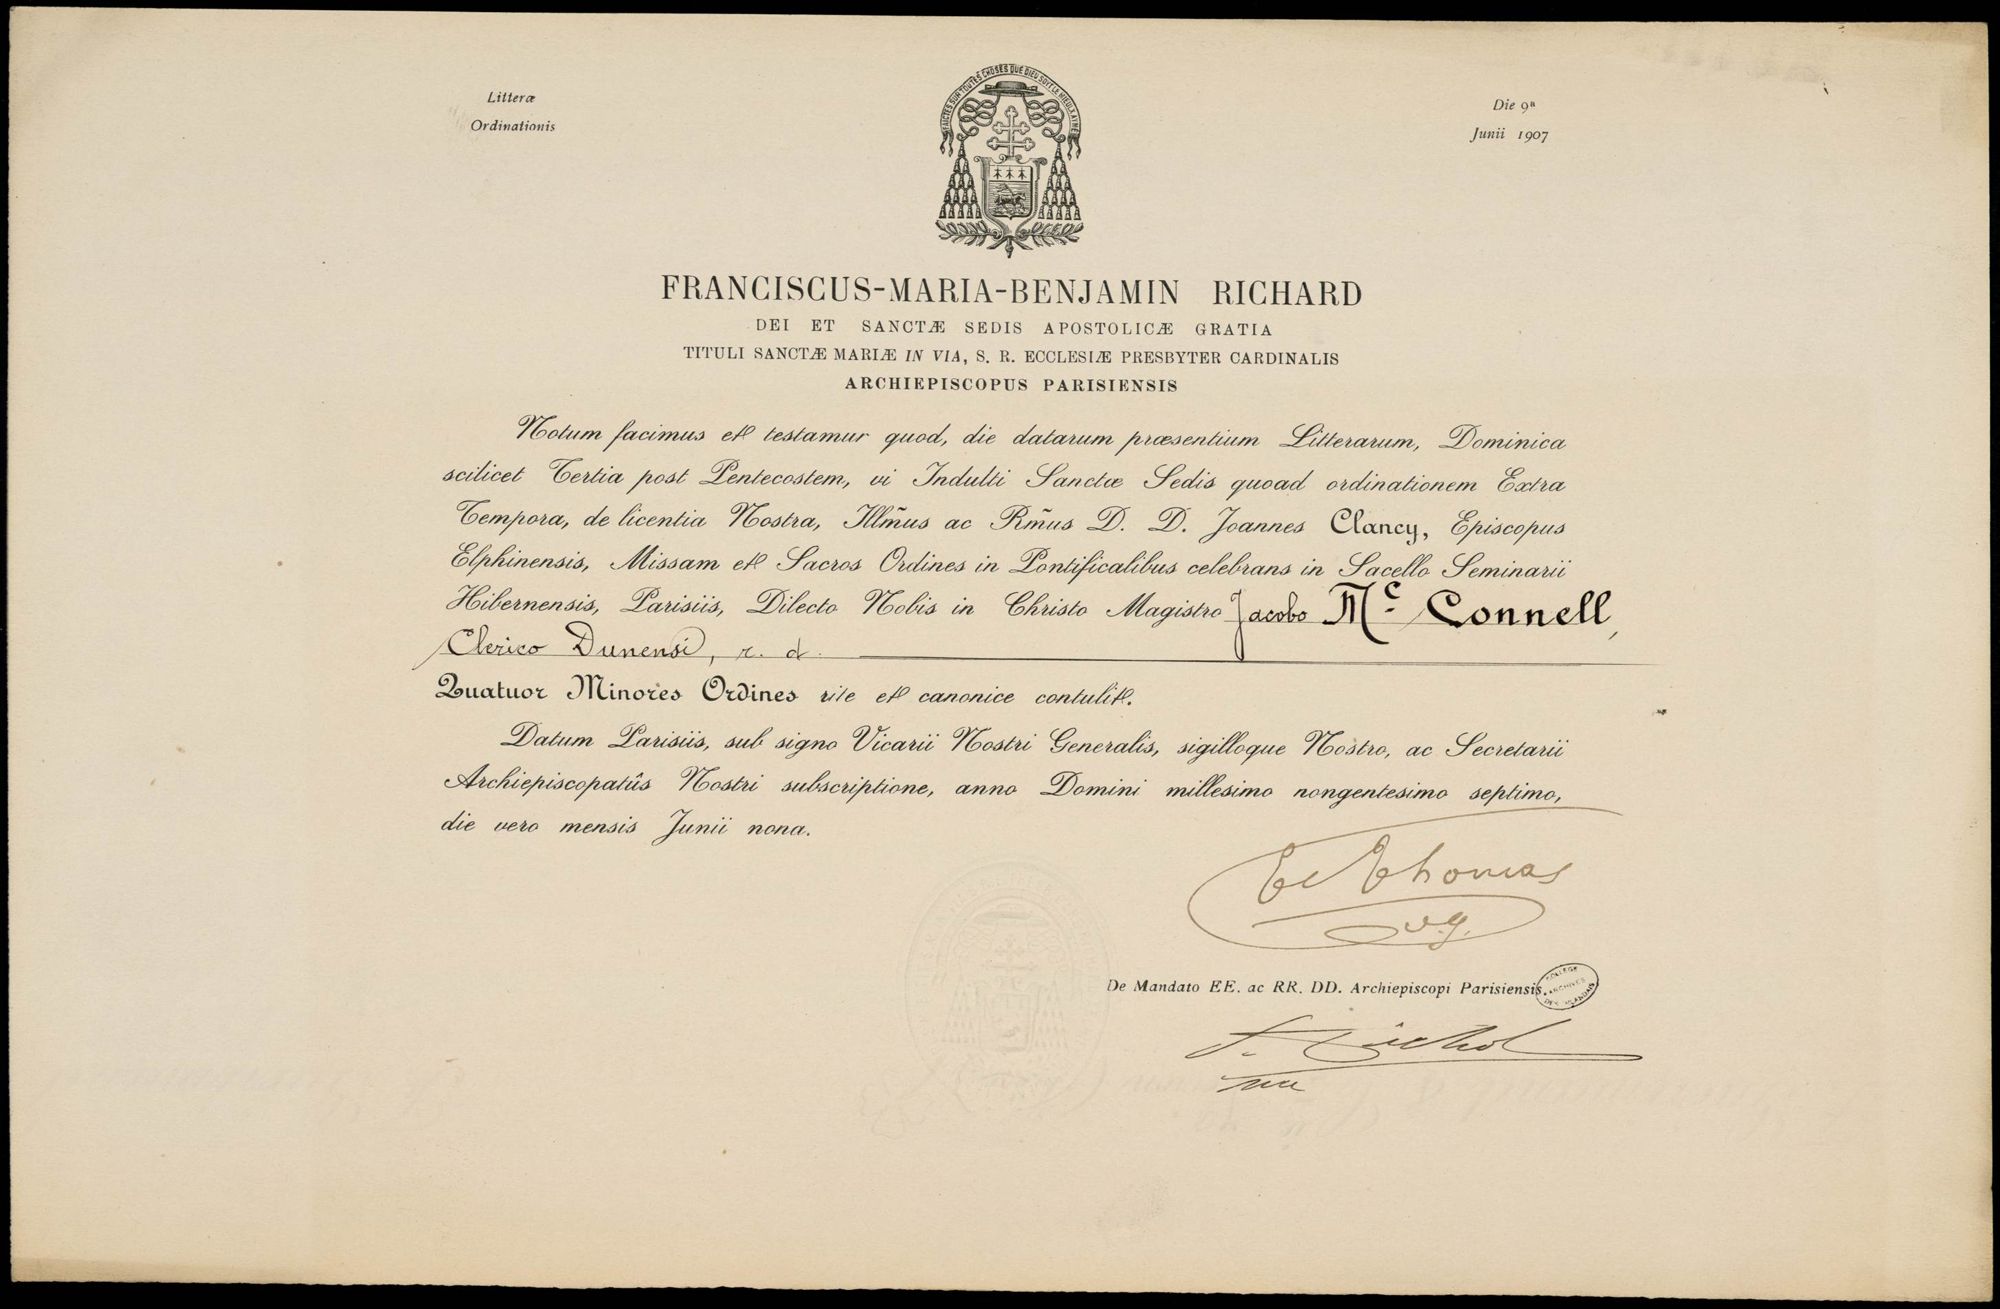 Litteræ
Ordinationis
Die 9ª
Junii 1907
FAICTES SUR TOUTES CHOSES QUE DIEU SOYT LE MIEULX AYMÉ
FRANCISCUS-MARIA-BENJAMIN RICHARD
DEI ET SANCTÆ SEDIS APOSTOLICÆ GRATIA
TITULI SANCTÆ MARIÆ IN VIA, S. R. ECCLESIÆ PRESBYTER CARDINALIS
ARCHIEPISCOPUS PARISIENSIS
Notum facimus et testamur quod, die datarum præsentium Litterarum, Dominica
scilicet Tertia post Pentecostem, vi Indulti Sanctæ Sedis quoad ordinationem Extra
Tempora, de licentia Nostra, Illm̃us ac Rm̃us D. D. Joannes Clancy, Episcopus
Elphinensis, Missam et Sacros Ordines in Pontificalibus celebrans in Sacello Seminarii
Hibernensis, Parisiis, Dilecto Nobis in Christo Magistro Jacobo Mc Connell,
Clerico Dunensi, r. d.
Quatuor Minores Ordines rite et canonice contulit.
Datum Parisiis, sub signo Vicarii Nostri Generalis, sigilloque Nostro, ac Secretarii
Archiepiscopatûs Nostri subscriptione, anno Domini millesimo nongentesimo septimo,
die vero mensis Junii nona.
Thomas
v.g.
De Mandato EE. ac RR. DD. Archiepiscopi Parisiensis.
COLLÈGE
ARCHIVES
DES IRLANDAIS